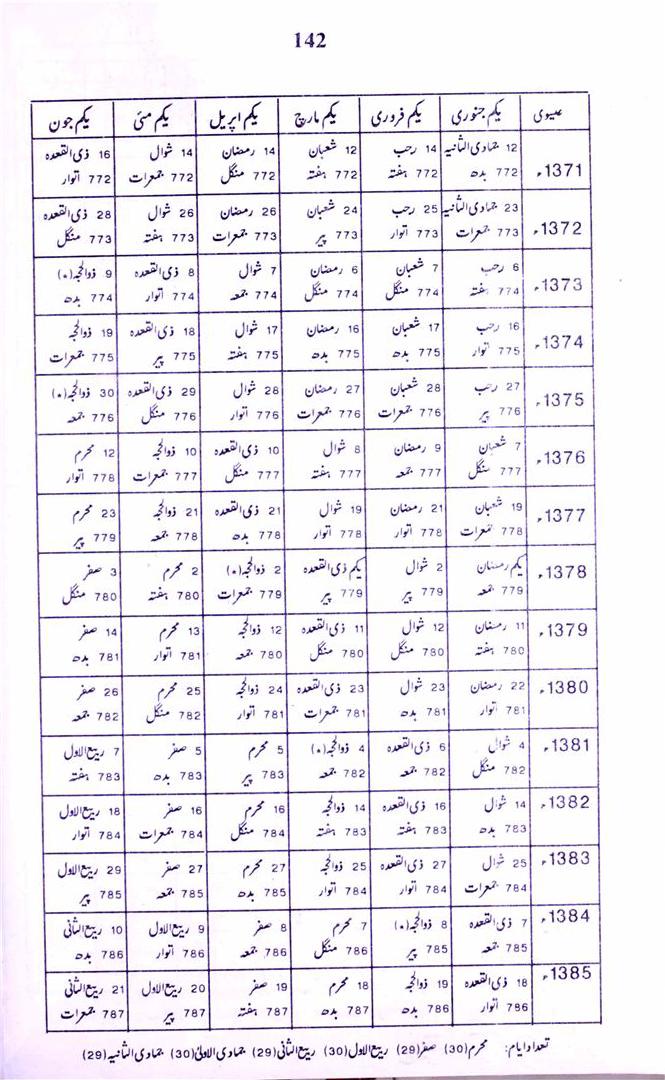 142
عیسوی یکم جنوری یکم فروری یکم مارچ یکم اپریل یکم مئی یکم جون
1371ء 12 جمادی الثانیہ 14 رجب 12 شعبان 14 رمضان 14 شوال 16 ذی القعدہ
772 بدھ 772 ہفتہ 772 ہفتہ 772 منگل 772 جمعرات 772 اتوار
1372ء 23 جمادی الثانیہ 25 رجب 24 شعبان 26 رمضان 26 شوال 28 ذی القعدہ
773 جمعرات 773 اتوار 773 پیر 773 جمعرات 773 ہفتہ 773 منگل
1373ء 6 رجب 7 شعبان 6 رمضان 7 شوال 8 ذی القعدہ 9 ذوالحجہ (*)
774 ہفتہ 774 منگل 774 منگل 774 جمعہ 774 اتوار 774 بدھ
1374ء 16 رجب 17 شعبان 16 رمضان 17 شوال 18 ذی القعدہ 19 ذوالحجہ
775 اتوار 775 بدھ 775 بدھ 775 ہفتہ 775 پیر 775 جمعرات
1375ء 27 رجب 28 شعبان 27 رمضان 28 شوال 29 ذی القعدہ 30 ذوالحجہ (*)
776 پیر 776 جمعرات 776 جمعرات 776 اتوار 776 منگل 776 جمعہ
1376ء 7 شعبان 9 رمضان 8 شوال 10 ذی القعدہ 10 ذوالحجہ 12 محرم
777 منگل 777 جمعہ 777 ہفتہ 777 منگل 777 جمعرات 778 اتوار
1377ء 19 شعبان 21 رمضان 19 شوال 21 ذی القعدہ 21 ذوالحجہ 23 محرم
778 جمعرات 778 اتوار 778 اتوار 778 بدھ 778 جمعہ 779 پیر
1378ء یکم رمضان 2 شوال یکم ذی القعدہ 2 ذوالحجہ (*) 2 محرم 3 صفر
779 جمعہ 779 پیر 779 پیر 779 جمعرات 780 ہفتہ 780 منگل
1379ء 11 رمضان 12 شوال 11 ذی القعدہ 12 ذوالحجہ 13 محرم 14 صفر
780 ہفتہ 780 منگل 780 منگل 780 جمعہ 781 اتوار 781 بدھ
1380ء 22 رمضان 23 شوال 23 ذی القعدہ 24 ذوالحجہ 25 محرم 26 صفر
781 اتوار 781 بدھ 781 جمعرات 781 اتوار 782 منگل 782 جمعہ
1381ء 4 شوال 6 ذی القعدہ 4 ذوالحجہ (*) 5 محرم 5 صفر 7 ربیع الاول
782 منگل 782 جمعہ 782 جمعہ 783 پیر 783 بدھ 783 ہفتہ
1382ء 14 شوال 16 ذی القعدہ 14 ذوالحجہ 16 محرم 16 صفر 18 ربیع الاول
783 بدھ 783 ہفتہ 783 ہفتہ 784 منگل 784 جمعرات 784 اتوار
1383ء 25 شوال 27 ذی القعدہ 25 ذوالحجہ 27 محرم 27 صفر 29 ربیع الاول
784 جمعرات 784 اتوار 784 اتوار 785 بدھ 785 جمعہ 785 پیر
1384ء 7 ذی القعدہ 8 ذوالحجہ (*) 7 محرم 8 صفر 9 ربیع الاول 10 ربیع الثانی
785 جمعہ 785 پیر 786 منگل 786 جمعہ 786 اتوار 786 بدھ
1385ء 18 ذی القعدہ 19 ذوالحجہ 18 محرم 19 صفر 20 ربیع الاول 21 ربیع الثانی
786 اتوار 786 بدھ 787 بدھ 787 ہفتہ 787 پیر 787 جمعرات
تعداد ایام: محرم (30) صفر (29) ربیع الاول (30) ربیع الثانی (29) جمادی الاولیٰ (30) جمادی الثانیہ (29)